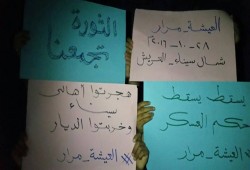 الثورة
تجمعنا
العيشة_مرار
٢٨-١٠-٢٠١٦
شمال سيناء_العريش
هجرتوا أهالي
سيناء
وخربتوا الديار
#العيشة_مرار
يسقط يسقط
حكم العسكر
#العيشة_مرار